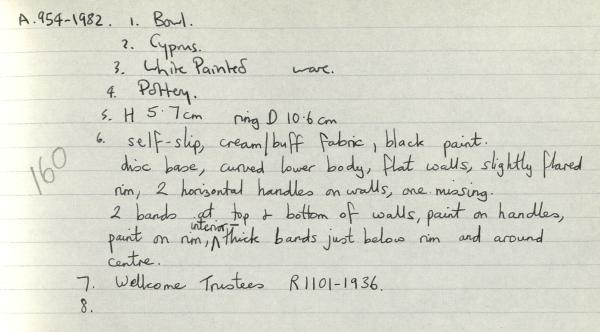 A.954-1982. 1. Bowl.
2. Cyprus.
3. White Painted ware.
4. Pottery.
5. H 5.7cm ring D 10.6cm
6. self-slip, cream/buff fabric, black paint.
disc base, curved lower body, flat walls, slightly flared
rim, 2 horizontal handles on walls, one missing.
2 bands at top & bottom of walls, paint on handles,
paint on rim, interior - thick bands just below rim and around
centre.
7. Wellcome Trustees R1101-1936.
8.
160